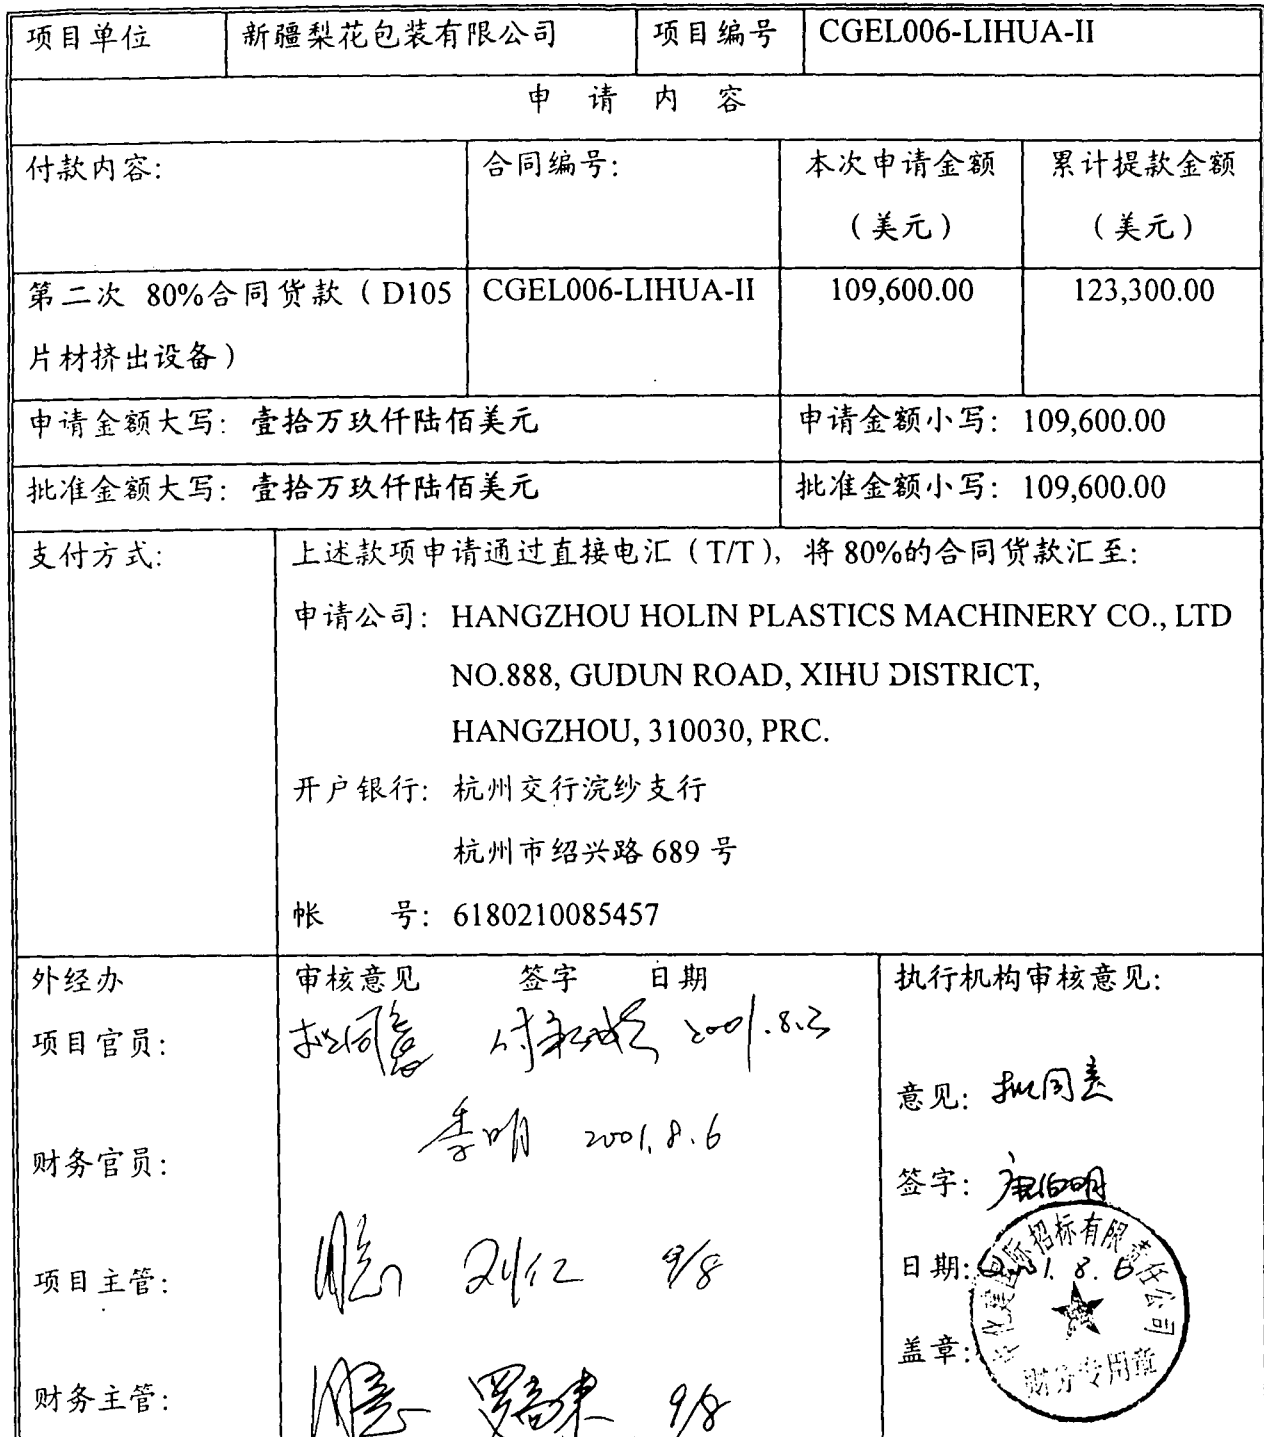 项目单位 新疆梨花包装有限公司 项目编号 CGEL006-LIHUA-II
申 请 内 容
付款内容: 合同编号: 本次申请金额 累计提款金额
（美元） （美元）
第二次 80%合同货款（D105 CGEL006-LIHUA-II 109,600.00 123,300.00
片材挤出设备）
申请金额大写: 壹拾万玖仟陆佰美元 申请金额小写: 109,600.00
批准金额大写: 壹拾万玖仟陆佰美元 批准金额小写: 109,600.00
支付方式: 上述款项申请通过直接电汇（T/T），将 80%的合同货款汇至:
申请公司: HANGZHOU HOLIN PLASTICS MACHINERY CO., LTD
NO.888, GUDUN ROAD, XIHU DISTRICT,
HANGZHOU, 310030, PRC.
开户银行: 杭州交行浣纱支行
杭州市绍兴路 689 号
帐 号: 6180210085457
外经办 审核意见 签字 日期 执行机构审核意见:
项目官员: 拟同意 2001.8.3
意见: 拟同意
李明 2001.8.6
财务官员:
签字:
项目主管: 同意 刘仁 9/8
日期: 2001.8.6
盖章:
国际招标有限责任公司
财务专用章
财务主管: 同意 9/8